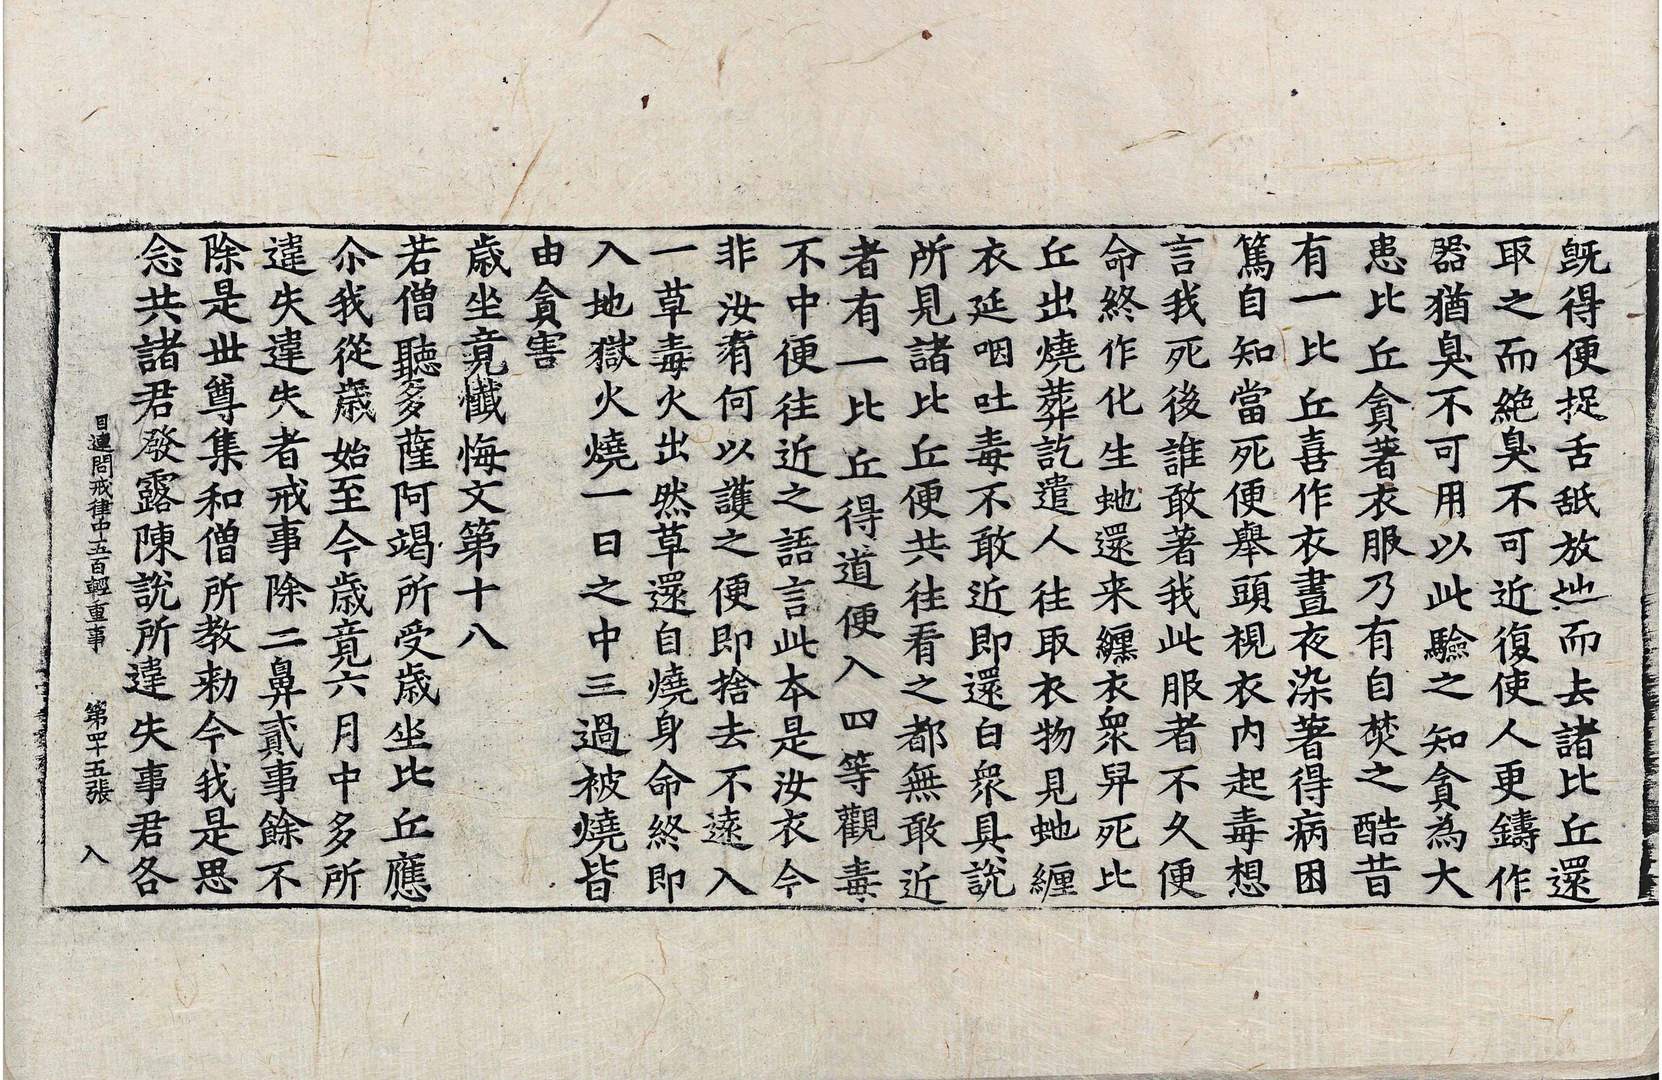 既得便捉舌舐放地而去諸比丘還
取之而絶臭不可近復使人更鑄作
器猶臭不可用以此驗之知貪為大
患比丘貪著衣服乃有自焚之酷昔
有一比丘喜作衣晝夜染著得病困
篤自知當死便舉頭視衣内起毒想
言我死後誰敢著我此服者不久便
命終作化生虵還来纏衣衆舁死比
丘出燒葬訖遣人往取衣物見虵纒
衣延咽吐毒不敢近即還白衆具說
所見諸比丘便共往看之都無敢近
者有一比丘得道便入四等觀毒
不中便往近之語言此本是汝衣今
非汝有何以護之便即捨去不遠入
一草毒火出然草還自燒身命終即
入地獄火燒一日之中三過被燒皆
由貪害
歳坐竟懺悔文第十八
若僧聽多薩阿竭所受歳坐比丘應
尒我從歳始至今歳竟六月中多所
違失違失者戒事除二鼻貳事餘不
除是世尊集和僧所教勑今我是思
念共諸君發露陳說所違失事君各
目連問戒律中五百輕重事 第四十五張 入